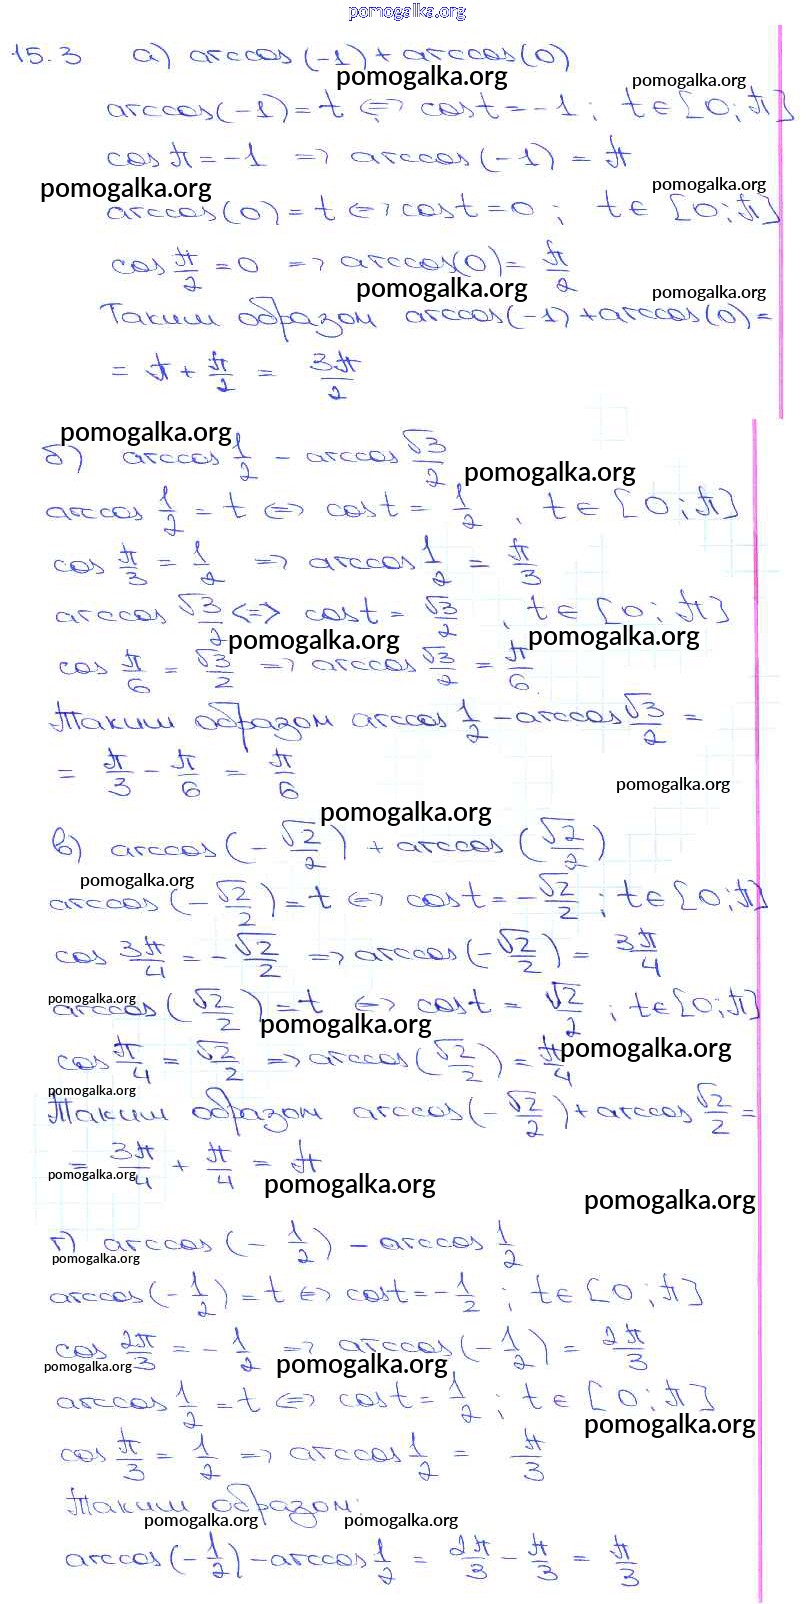 pomogalka.org
15.3 а) arccos(-1)+arccos(0)
pomogalka.org pomogalka.org
arccos(-1)=t ⟺ cost=-1; t∈[0;π]
cosπ=-1 => arccos(-1)=π
pomogalka.org pomogalka.org
arccos(0)=t ⟺ cost=0; t∈[0;π]
cos π/2=0 => arccos(0)=π/2
pomogalka.org pomogalka.org
Таким образом arccos(-1)+arccos(0)=
=π+π/2=3π/2
pomogalka.org
б) arccos 1/2 - arccos √3/2
pomogalka.org
arccos 1/2=t ⟺ cost=1/2, t∈[0;π]
cos π/3=1/2 => arccos 1/2=π/3
arccos √3/2 ⟺ cost=√3/2, t∈[0;π]
pomogalka.org pomogalka.org
cos π/6=√3/2 => arccos √3/2=π/6
Таким образом arccos 1/2-arccos √3/2=
=π/3-π/6=π/6
pomogalka.org
pomogalka.org
в) arccos(-√2/2)+arccos(√2/2)
pomogalka.org
arccos(-√2/2)=t ⟺ cost=-√2/2; t∈[0;π]
cos 3π/4=-√2/2 => arccos(-√2/2)=3π/4
pomogalka.org
arccos(√2/2)=t ⟺ cost=√2/2; t∈[0;π]
pomogalka.org
cos π/4=√2/2 => arccos(√2/2)=π/4
pomogalka.org
pomogalka.org
Таким образом arccos(-√2/2)+arccos √2/2=
=3π/4+π/4=π
pomogalka.org pomogalka.org
pomogalka.org
г) arccos(-1/2)-arccos 1/2
pomogalka.org
arccos(-1/2)=t ⟺ cost=-1/2; t∈[0;π]
cos 2π/3=-1/2 => arccos(-1/2)=2π/3
pomogalka.org pomogalka.org
arccos 1/2=t ⟺ cost=1/2; t∈[0;π]
pomogalka.org
cos π/3=1/2 => arccos 1/2=π/3
Таким образом:
pomogalka.org pomogalka.org
arccos(-1/2)-arccos 1/2=2π/3-π/3=π/3